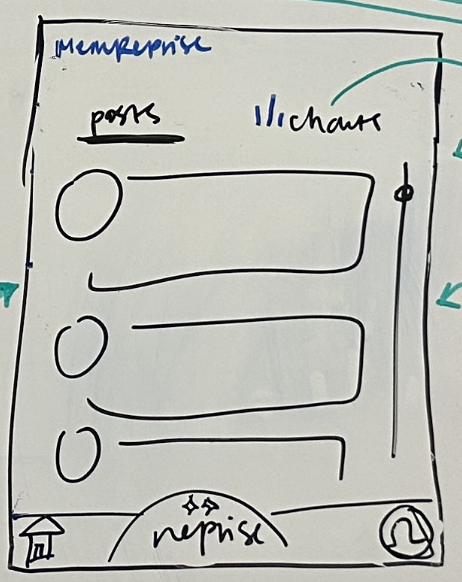 MemReprise
posts
charts
reprise